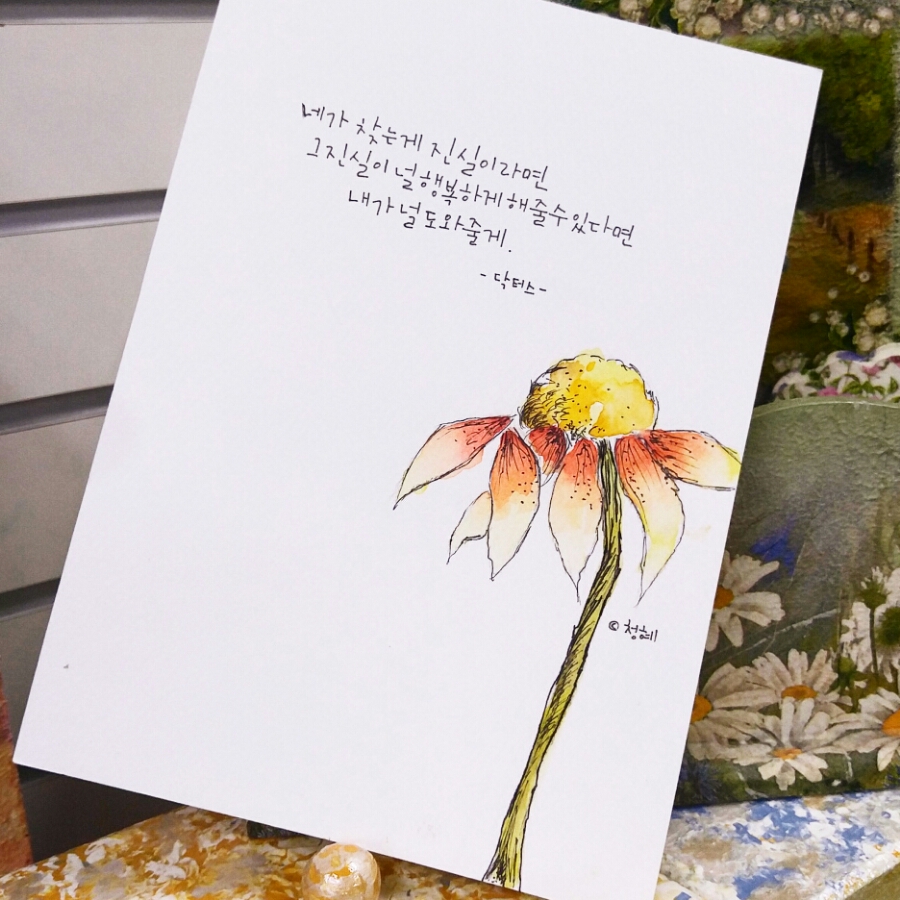 네가 찾는게 진실이라면
그진실이 널 행복하게 해줄수있다면
내가 널 도와줄게.
- 닥터스 -
© 청혜